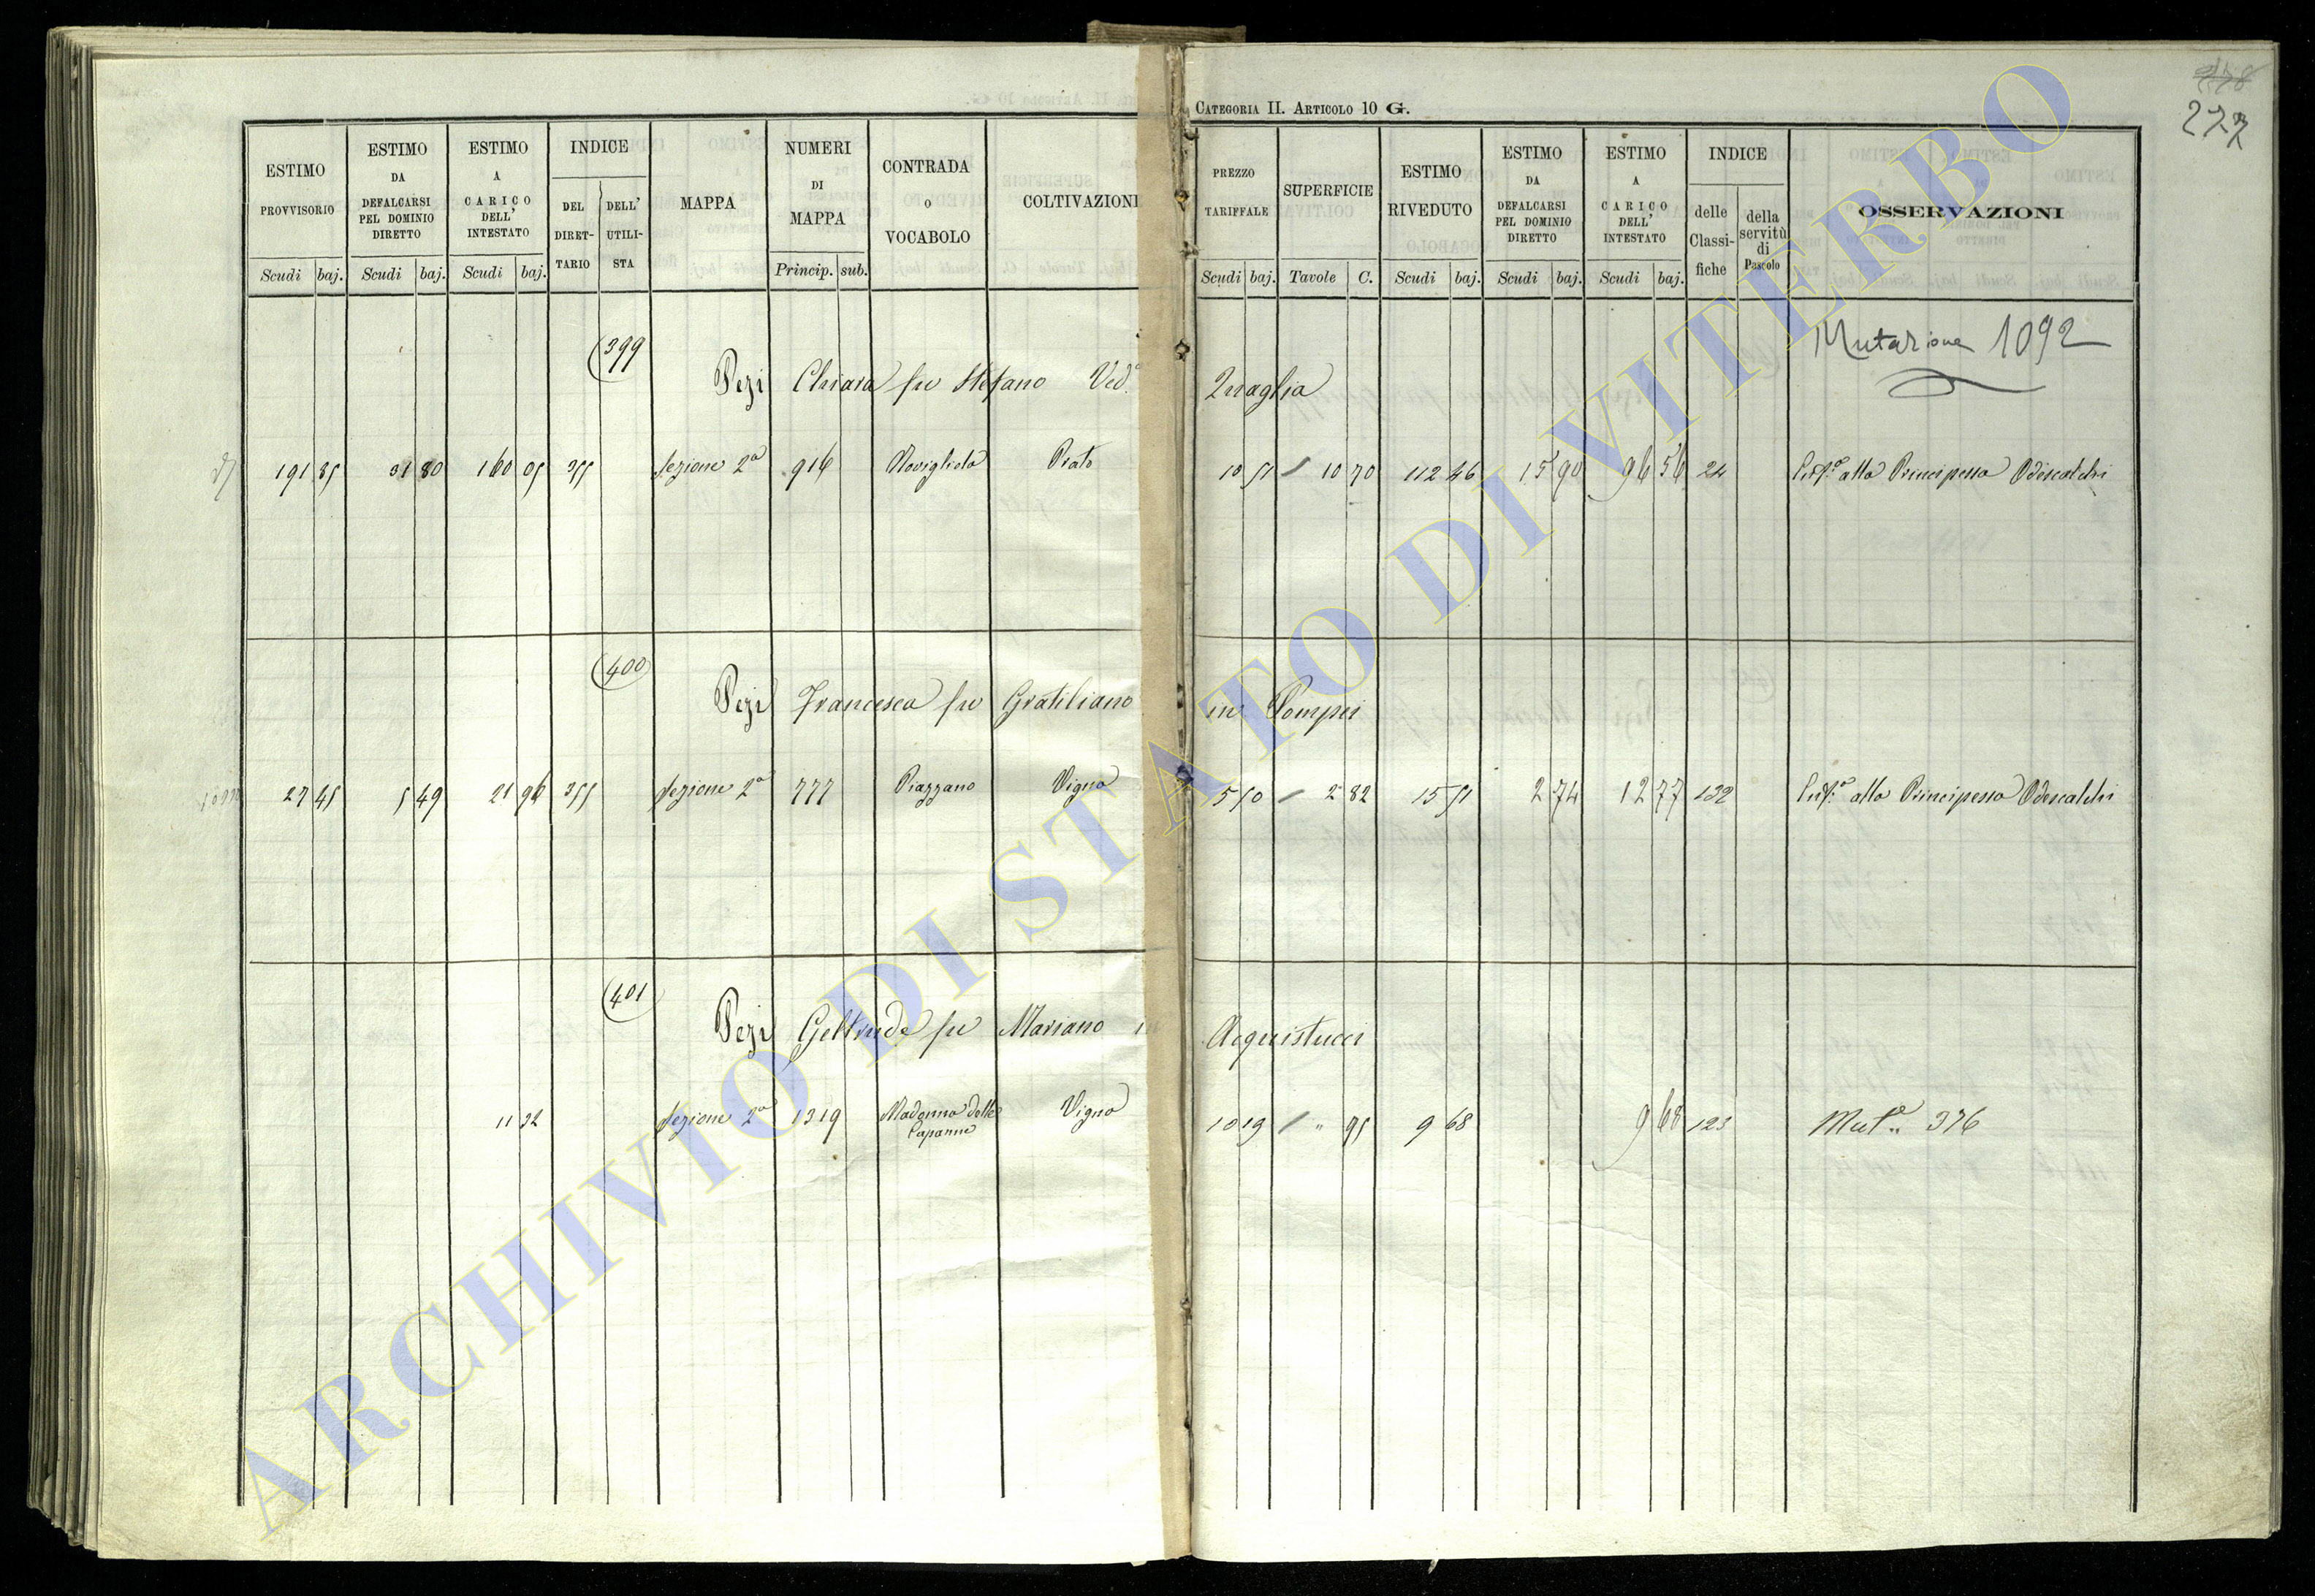 CATEGORIA II. ARTICOLO 10 G.
277
ESTIMO PROVVISORIO
Scudi baj.
ESTIMO DA DEFALCARSI PEL DOMINIO DIRETTO
Scudi baj.
ESTIMO A CARICO DELL' INTESTATO
Scudi baj.
INDICE
DEL DIRET- TARIO
DELL' UTILI- STA
MAPPA
NUMERI DI MAPPA
Princip. sub.
CONTRADA O VOCABOLO
COLTIVAZIONI
PREZZO TARIFFALE
Scudi baj.
SUPERFICIE
Tavole C.
ESTIMO RIVEDUTO
Scudi baj.
ESTIMO DA DEFALCARSI PEL DOMINIO DIRETTO
Scudi baj.
ESTIMO A CARICO DELL' INTESTATO
Scudi baj.
INDICE
delle Classi- fiche
della servitù di Pascolo
OSSERVAZIONI
Mutazione 1092
399
Pezi Chiara fu Stefano Ved.a Quaglia
191 85 31 80 160 05 355 Sezione 2a 916 Prato 10 51 10 70 112 46 15 90 96 56 24 alla Principessa Odescalchi
400
Pezi Francesca fu Gratiliano in Pompei
27 45 5 49 21 96 355 Sezione 2a 777 Piazzano Vigna 5 50 2 82 15 51 2 74 12 77 132 alla Principessa Odescalchi
401
Pezi Geltrude fu Mariano in Acquistucci
11 32 Sezione 2a 1319 Madonna delle Capanne Vigna 10 19 " 95 9 68 9 68 123 Mut.e 376
ARCHIVIO DI STATO DI VITERBO